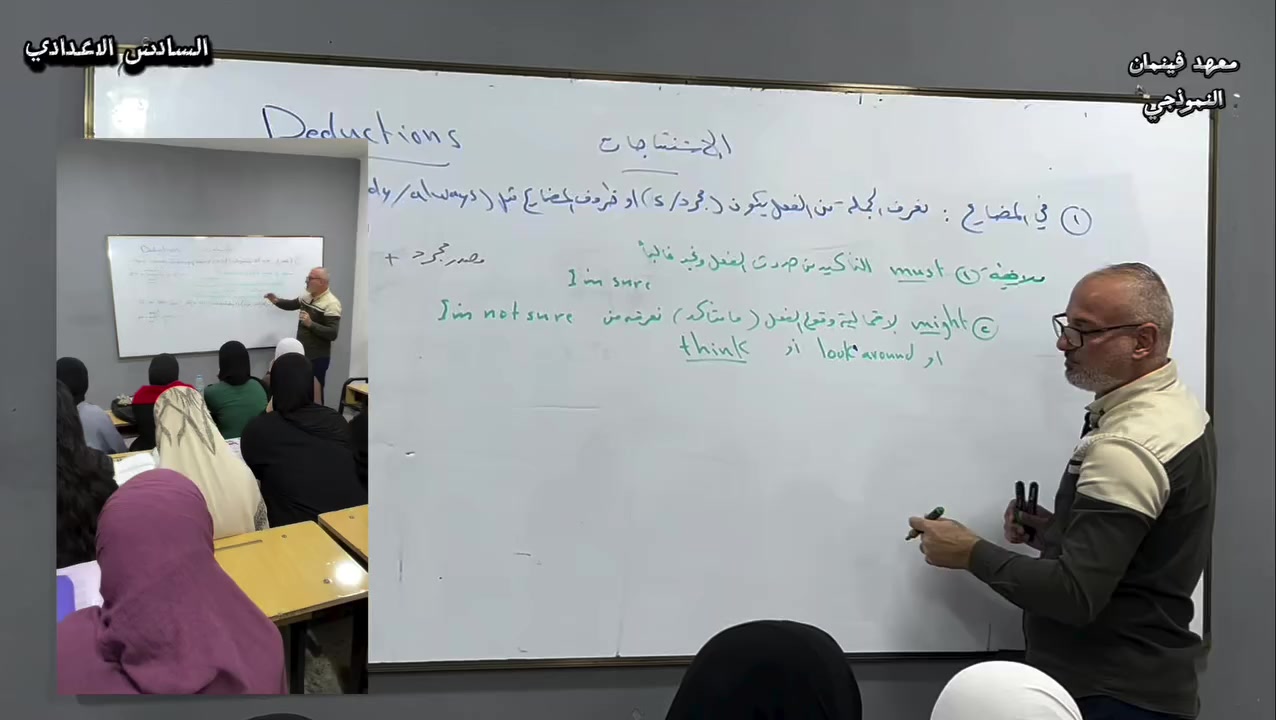 السادس الاعدادي
معهد فينمان
النموذجي
Deductions الاستنتاجات
① في المضارع : نعرف الجملة من الفعل يكون (مجرد/s) او ظروف المضارع مثل (dy/always
ملاحظة ① must التأكيد من حدوث الفعل ونجد غالباً مصدر مجرد +
I'm sure
② might لاحتمالية وقوع الفعل (ما متأكد) نعرفه من I'm not sure
او look around او think